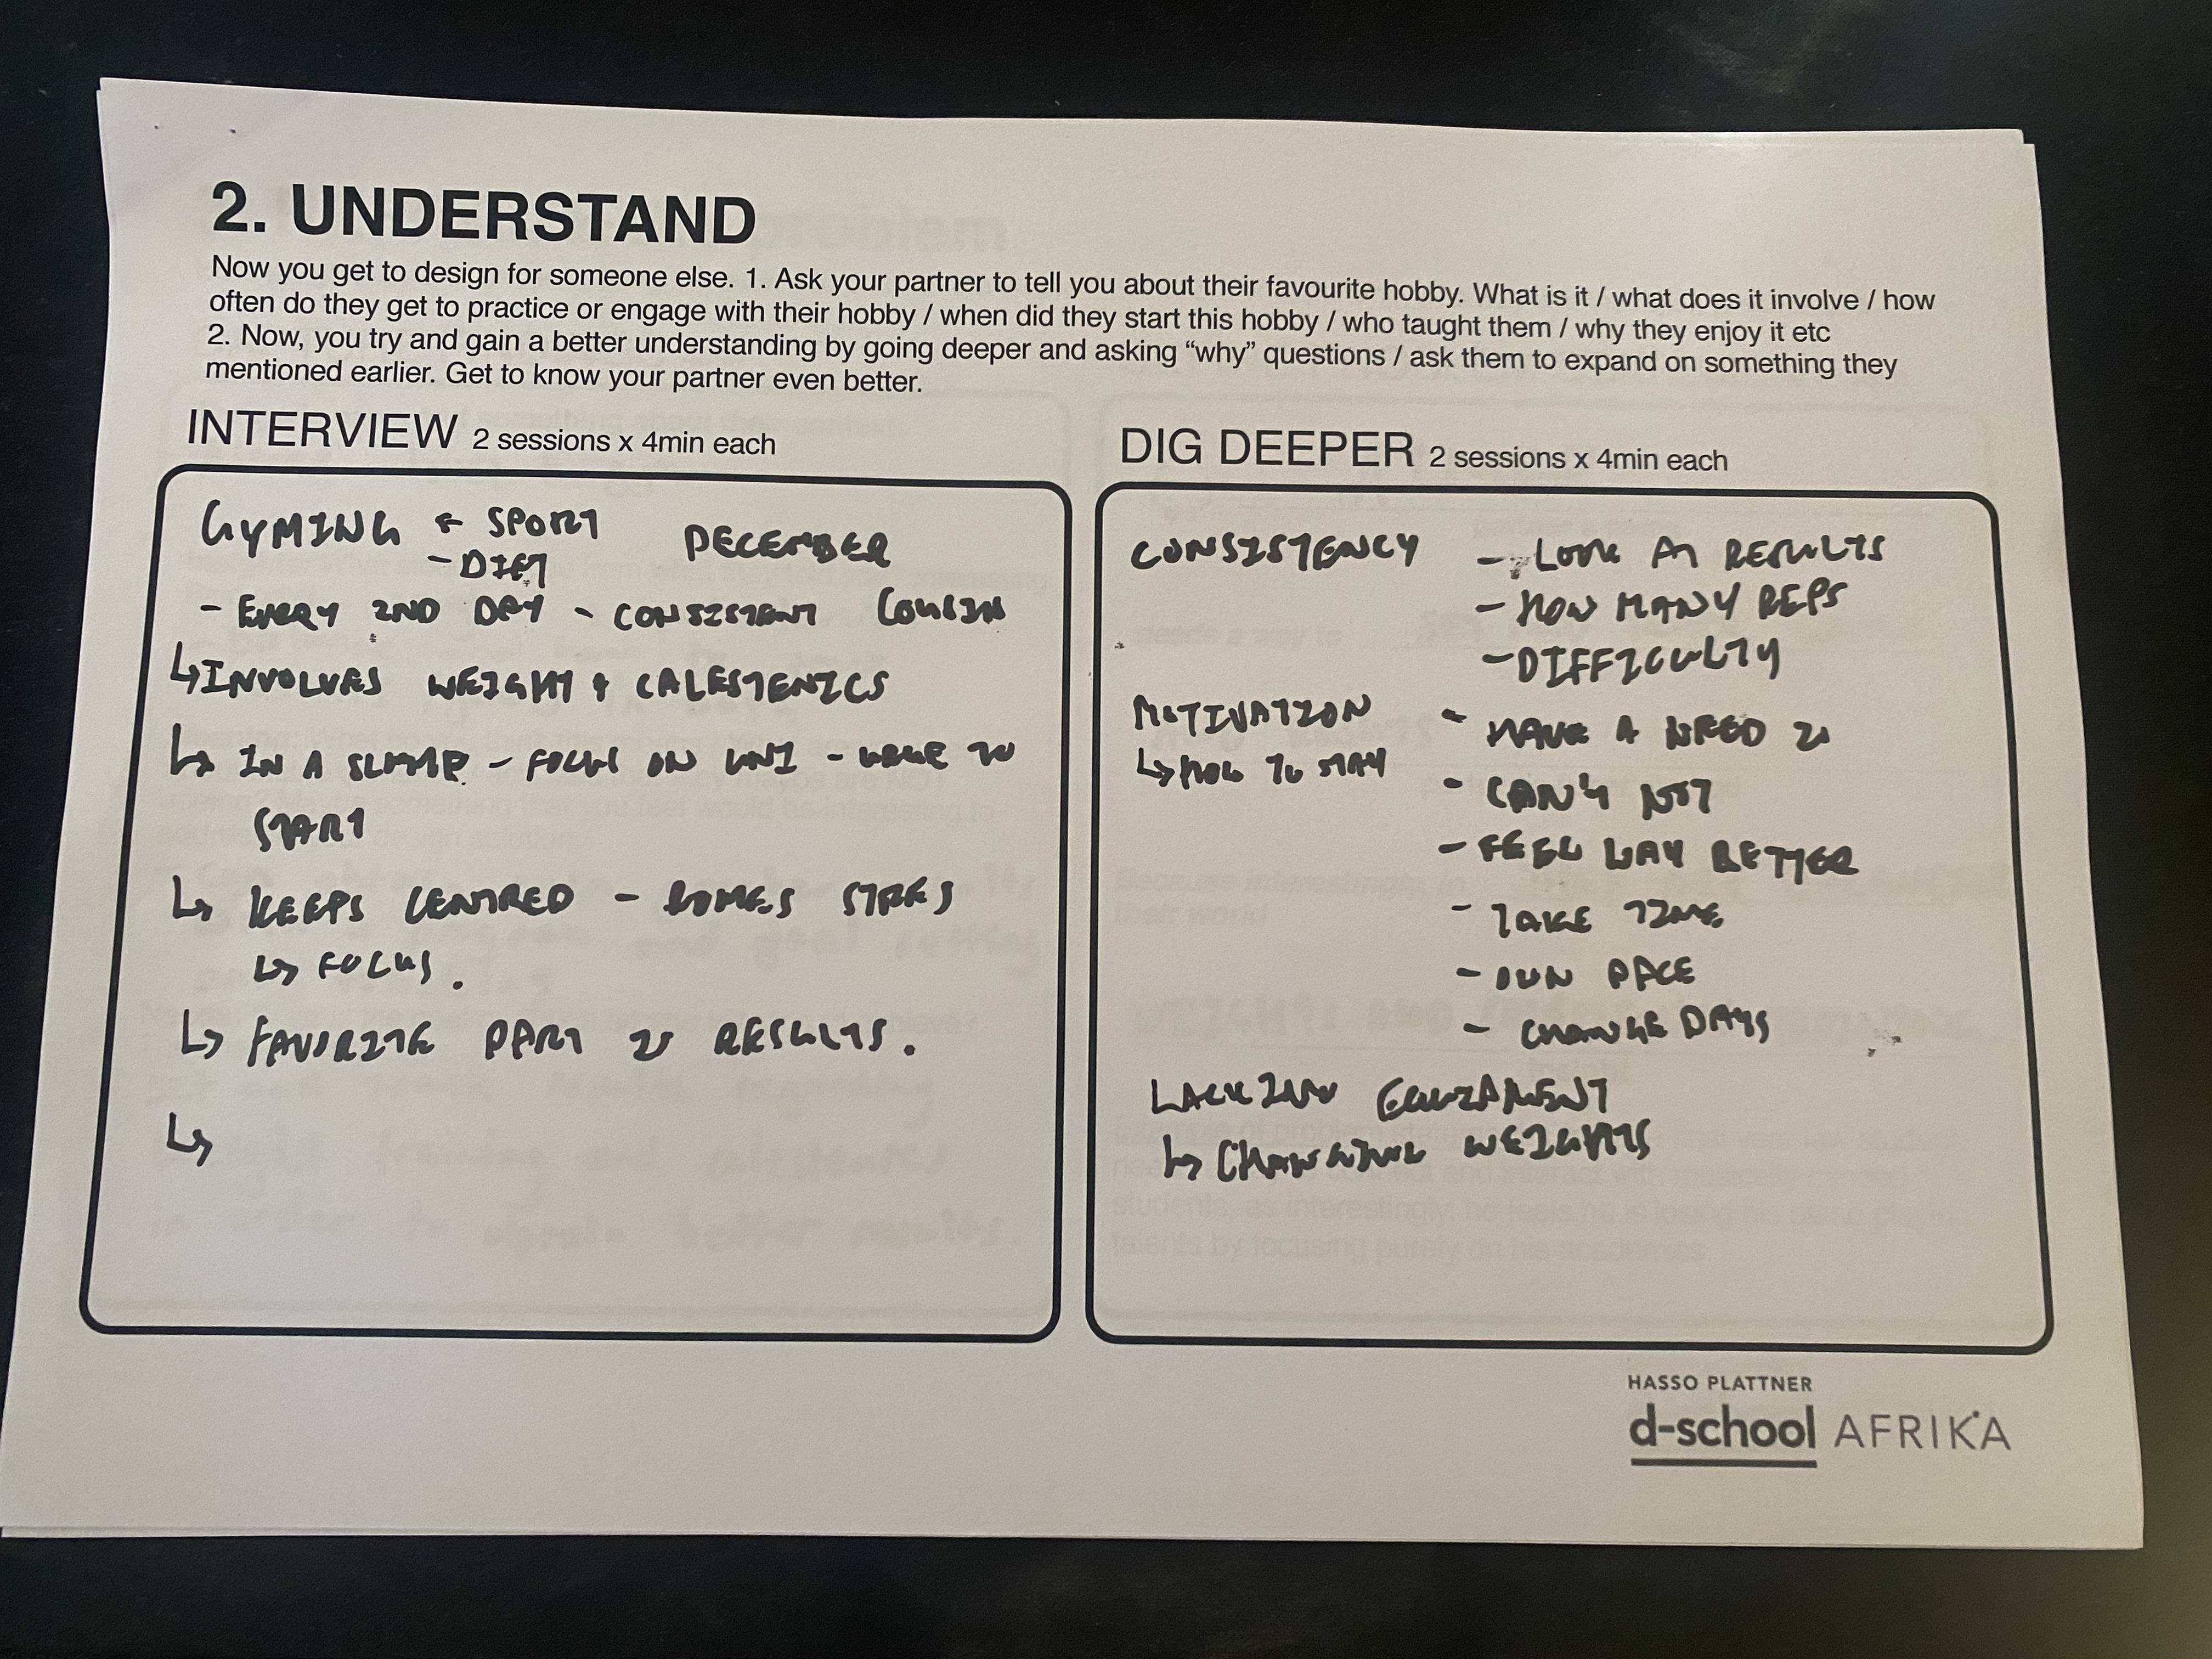 2. UNDERSTAND
Now you get to design for someone else. 1. Ask your partner to tell you about their favourite hobby. What is it / what does it involve / how
often do they get to practice or engage with their hobby / when did they start this hobby / who taught them / why they enjoy it etc
2. Now, you try and gain a better understanding by going deeper and asking “why” questions / ask them to expand on something they
mentioned earlier. Get to know your partner even better.
INTERVIEW 2 sessions x 4min each
GYMING & SPORT
- DIET
DECEMBER
- EVERY 2ND DAY - CONSISTENT COUSIN
↳ INVOLVES WEIGHT & CALESTENICS
↳ IN A SLUMP - FOCUS ON UNI - TO
START
↳ KEEPS CENTRED - STRES
↳ FOCUS.
↳ FAVORITE PART IS RESULTS.
↳
DIG DEEPER 2 sessions x 4min each
CONSISTENCY - LOOK AT RESULTS
- HOW MANY REPS
- DIFFICULTY
MOTIVATION - HAVE A NEED
↳ HOW TO STAY
- CAN'T NOT
- FEEL WAY BETTER
- TAKE TIME
- OWN PACE
- CHANGE DAYS
LACKING EQUIPMENT
↳ CHANGING WEIGHTS
HASSO PLATTNER
d-school AFRIKA